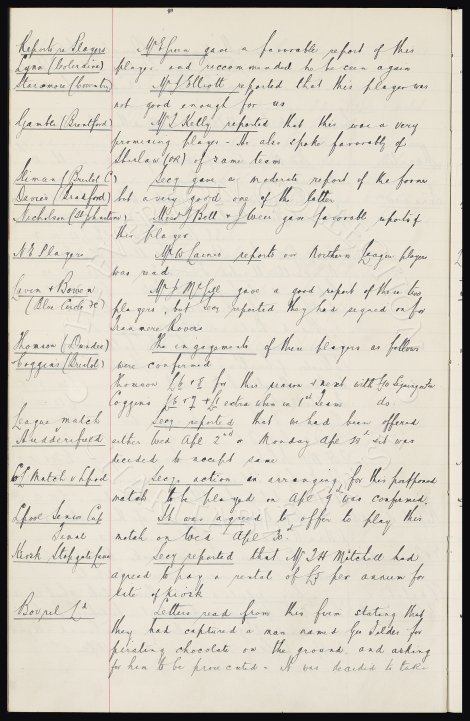 Reports re Players Mr E Green gave a favorable report of this
Lynn (Coleraine) player and recommended he be seen again
Staramore (Coventry) Mr J Elliott reported that this player was
not good enough for us
Gamble (Brentford) Mr T Kelly reported that this was a very
promising player - He also spoke favorably of
Shirlaw (OR) of same team
Seman (Bristol C) Secy gave a moderate report of the former
Davies (Bradford) but a very good one of the latter
Nicholson (St Johnstone) Messrs J Bell & J gave favorable report of
this player
N.E. Players Mr W reports on Northern League players
was read
Laven & Bowen Mr gave a good report of these two
(Blue Circle FC) players, but Secy reported they had signed on for
Tranmere Rovers
Thomson (Dundee) The engagements of these players as follows
Coggins (Bristol) were confirmed
Thomson £6 & £ for this season & next with
Coggins £ & £1 extra when in 1st Team do.
League match Secy reported that we had been offered
Huddersfield either Wed Apl 2nd or Monday Apl & it was
decided to accept same
Match v Lpool Secy's action in arranging for this postponed
match to be played on Apl 9th was confirmed.
Lpool Senior Cup It was agreed to offer to play this
Final match on Wed Apl 30.
Kiosk Stopgate Lane Secy reported that Mr J H Mitchell had
agreed to pay a rental of £5 per annum for
site of kiosk
Bovril Ld Letters read from this firm stating that
they had captured a man named Geo for
pirating chocolate on the ground, and asking
for him to be prosecuted - It was decided to take